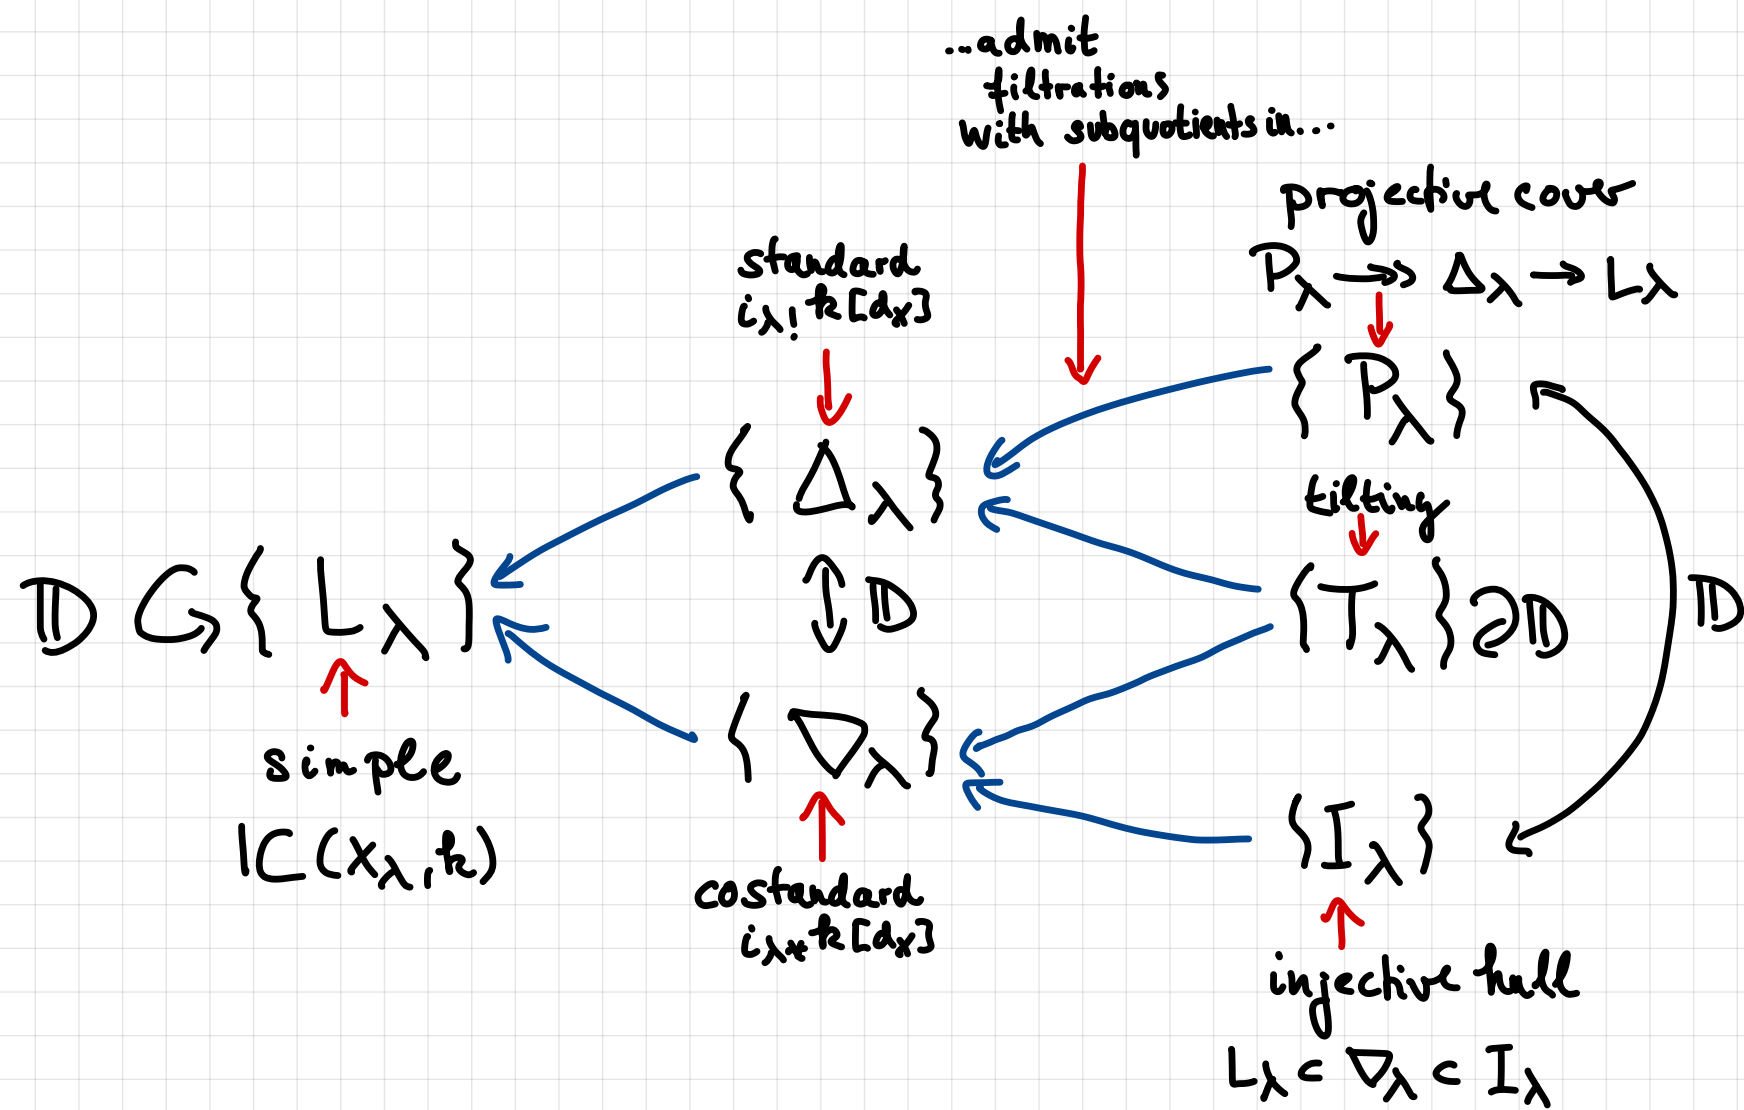 ...admit
filtrations
with subquotients in...
projective cover
P_λ ↠ Δ_λ → L_λ
standard
i_λ! k[d_x]
{ P_λ }
{ Δ_λ }
tilting
𝔻 ↻ { L_λ }
𝔻
{ T_λ } ↺ 𝔻
𝔻
simple
IC(X_λ, k)
{ ∇_λ }
costandard
i_λ* k[d_x]
{ I_λ }
injective hull
L_λ ⊂ ∇_λ ⊂ I_λ